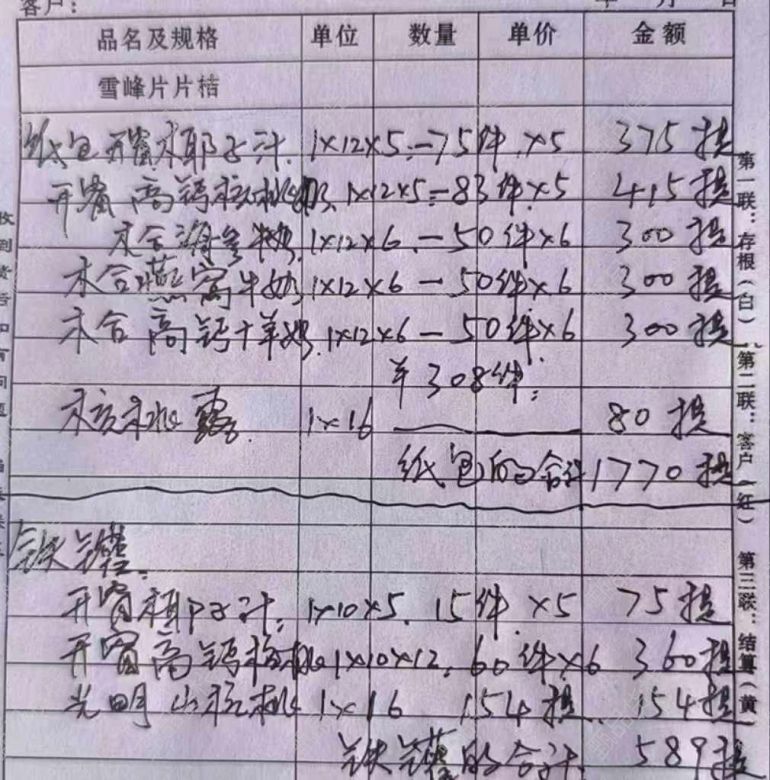 客户： 年 月 日
品名及规格 单位 数量 单价 金额
雪峰片片桔
纸包开窗椰子汁 1×12×5 — 75件×5 375提
开窗高钙核桃奶 1×12×5 — 83件×5 415提
木合海参牛奶 1×12×6 — 50件×6 300提
木合燕窝牛奶 1×12×6 — 50件×6 300提
木合高钙羊奶 1×12×6 — 50件×6 300提
308件
核桃露 1×16 — 80提
纸包的合计 1770提
铁罐
开窗椰子汁 1×10×5 15件×5 75提
开窗高钙核桃 1×10×12 60件×6 360提
光明山核桃 1×16 154提 154提
铁罐的合计 589提
第一联：存根（白） 第二联：客户（红） 第三联：结算（黄